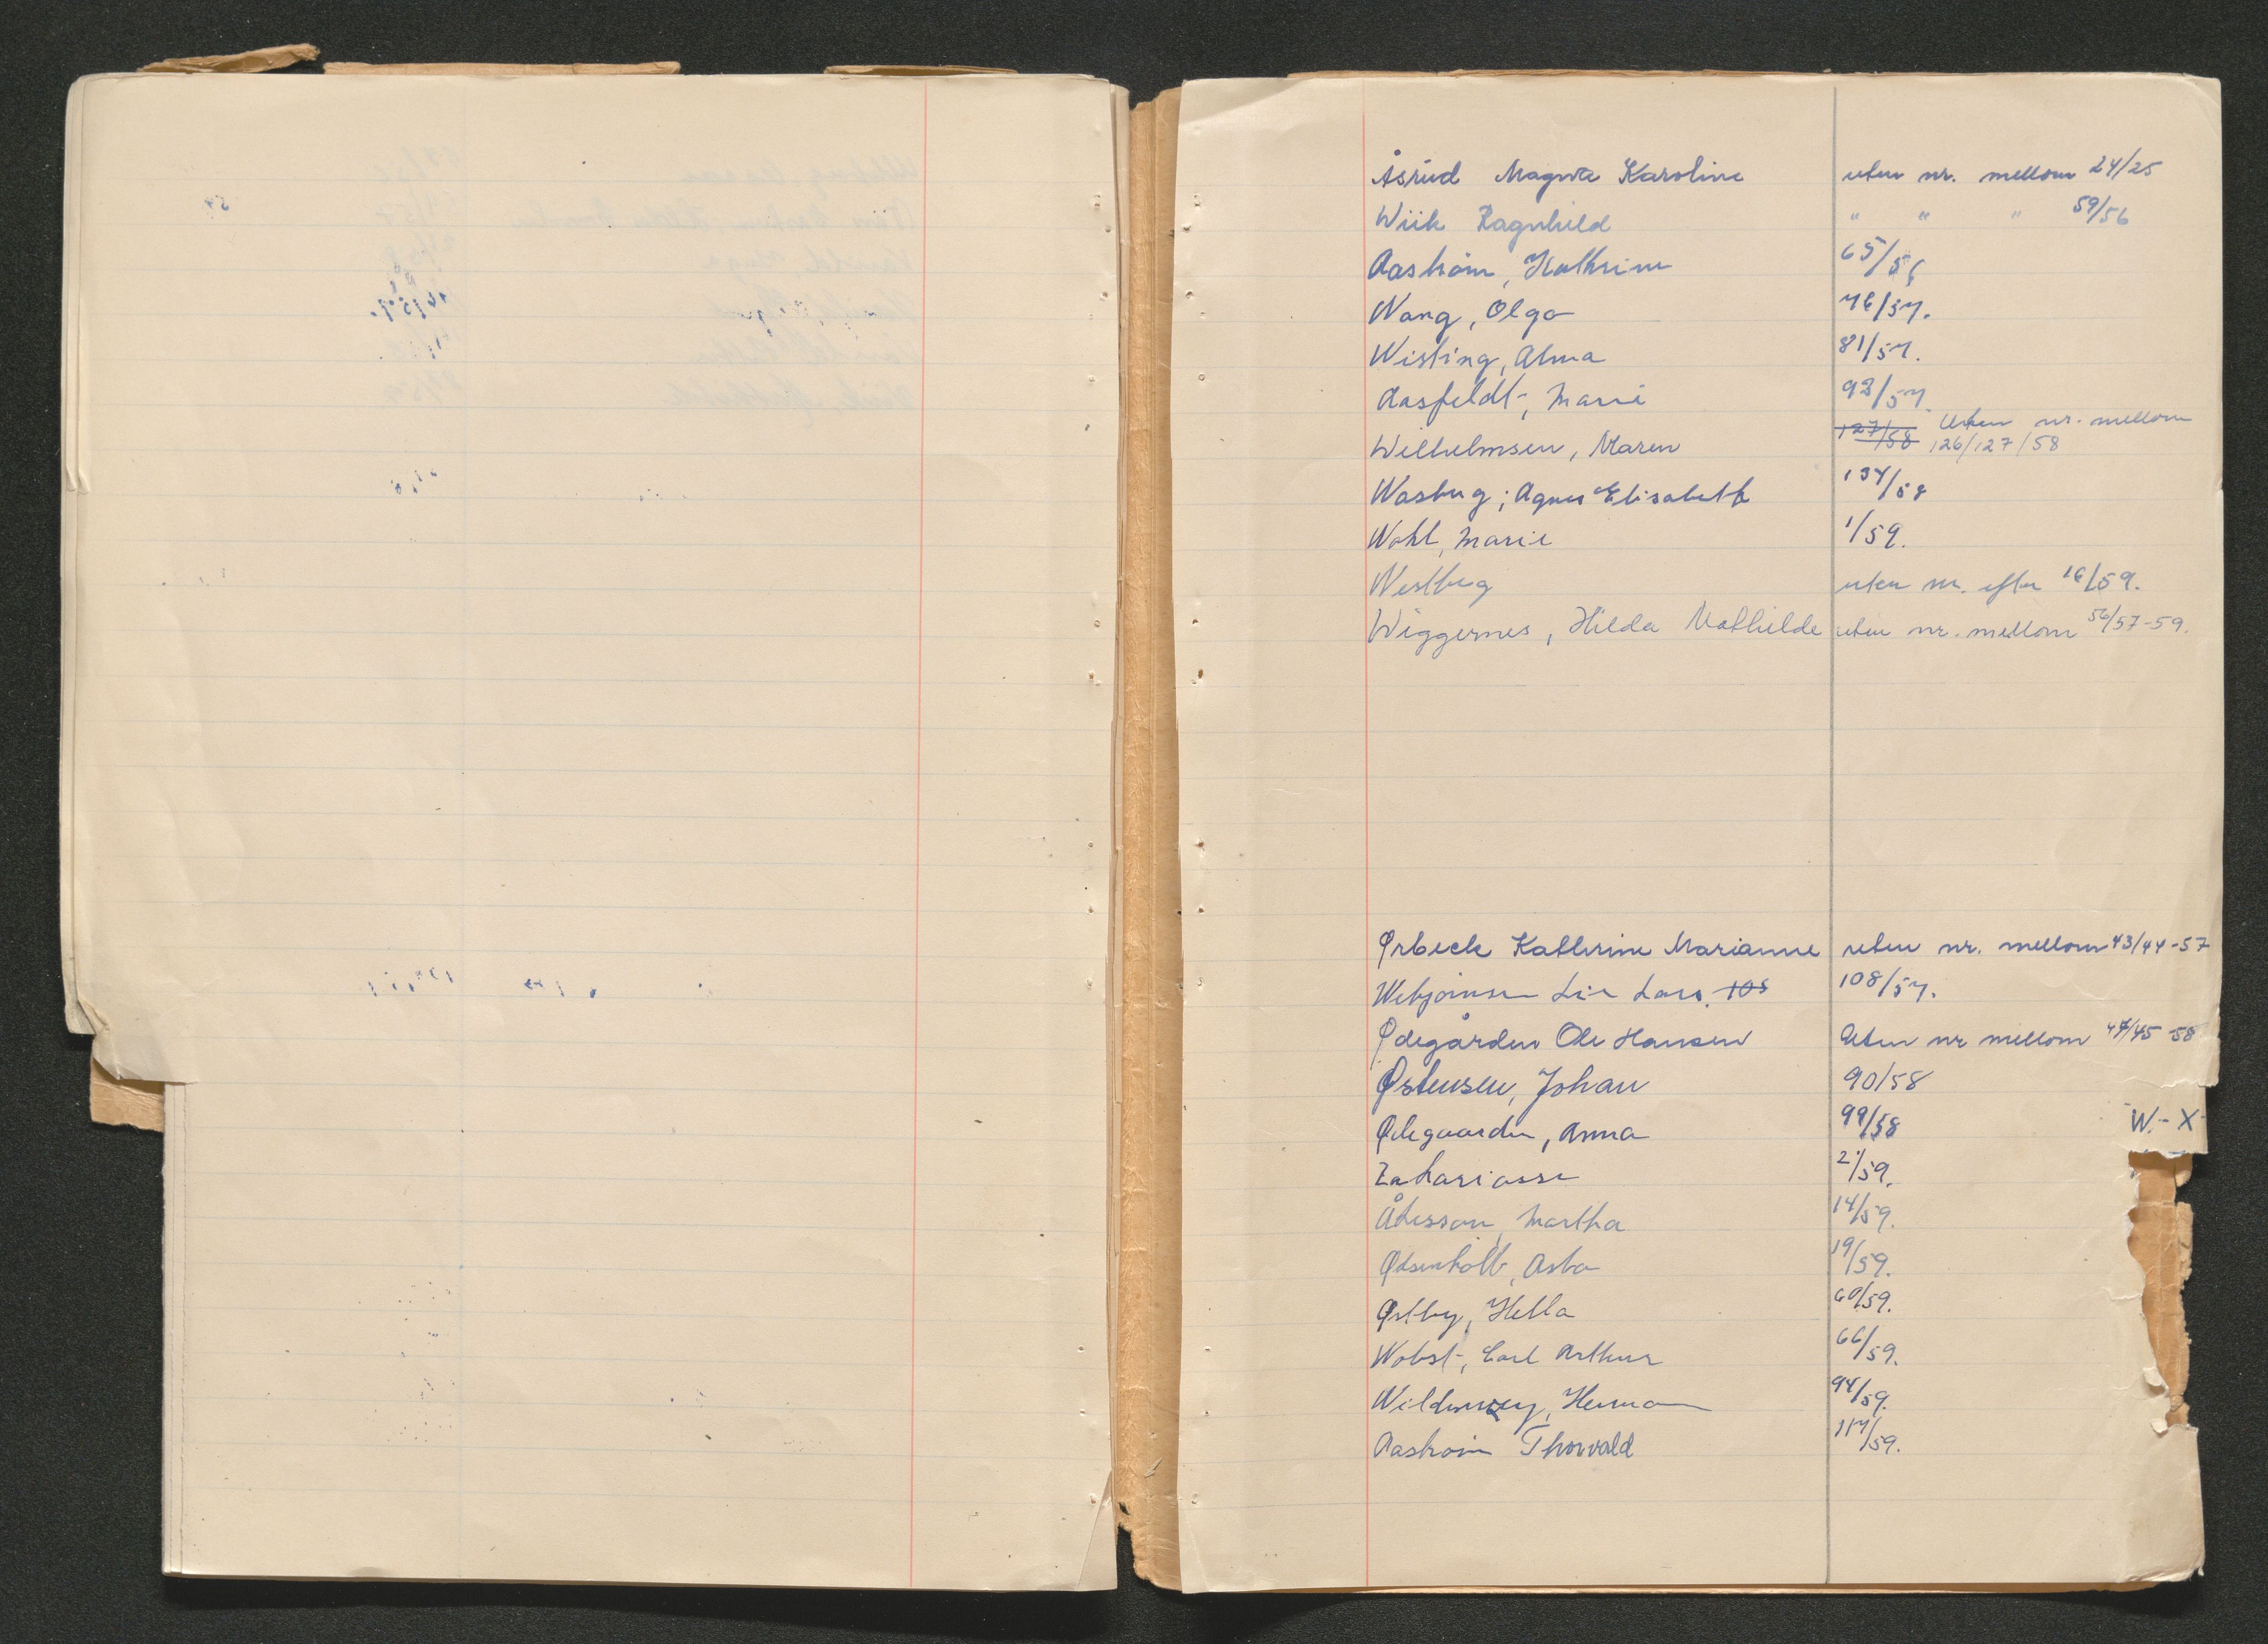 Åsrud Magna Karoline uten nr. mellom 24/25
Wiik Ragnhild " " " 59/56
Aastrøm, Kathrine 65/56
Wang, Olga 76/57.
Wisting, Alma 81/57.
Aasfeldt, Marie 93/57.
Wilhelmsen, Maren 127/58 Uten nr. mellom
126/127/58
Wasberg; Agnes Elisabeth 134/58
Wahl, Marie 1/59.
Westberg uten nr. efter 16/59.
Wiggernes, Hilda Mathilde uten nr. mellom 56/57-59.
Ørbeck Kathrine Marianne uten nr. mellom 43/44-57
Lars. 108 108/57.
Ødegården Ole Hansen Uten nr mellom 44/45 58
Østensen, Johan 90/58
Ødegaarden, Anna 99/58
W.-X
Zakariassen 2/59.
Åkesson, Martha 14/59.
Asta 19/59.
Østby, Hella 60/59.
Wobst, Carl Arthur 66/59.
Wildenvey, Herman 94/59.
Aastrøm Thorvald 117/59.